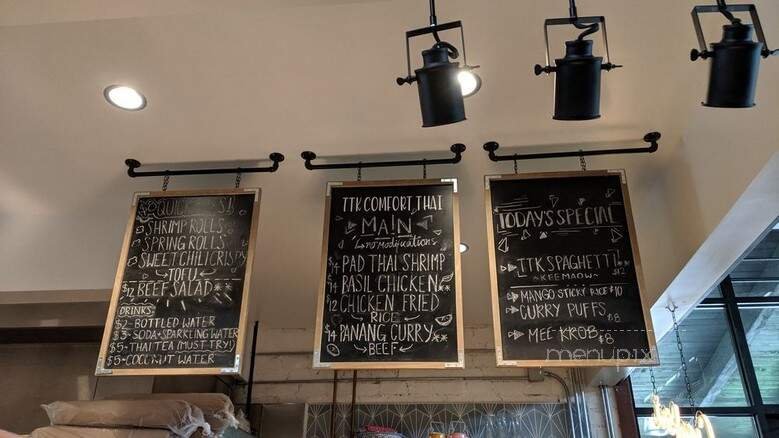 QUICK
SHRIMP ROLLS
SPRING ROLLS
SWEET CHILI CRISPY
TOFU
BEEF SALAD
DRINKS:
$2- BOTTLED WATER
$3- SODA + SPARKLING WATER
$5- THAI TEA (MUST TRY!)
$5- COCONUT WATER
TTK COMFORT THAI
MAIN
no modifications
$14 PAD THAI SHRIMP
$14 BASIL CHICKEN
$12 CHICKEN FRIED
RICE
$14 PANANG CURRY
BEEF
TODAYS SPECIAL
TTK SPAGHETTI
~KEE MAOW~ $12
MANGO STICKY RICE $10
CURRY PUFFS $8
MEE KROB $8
menupix